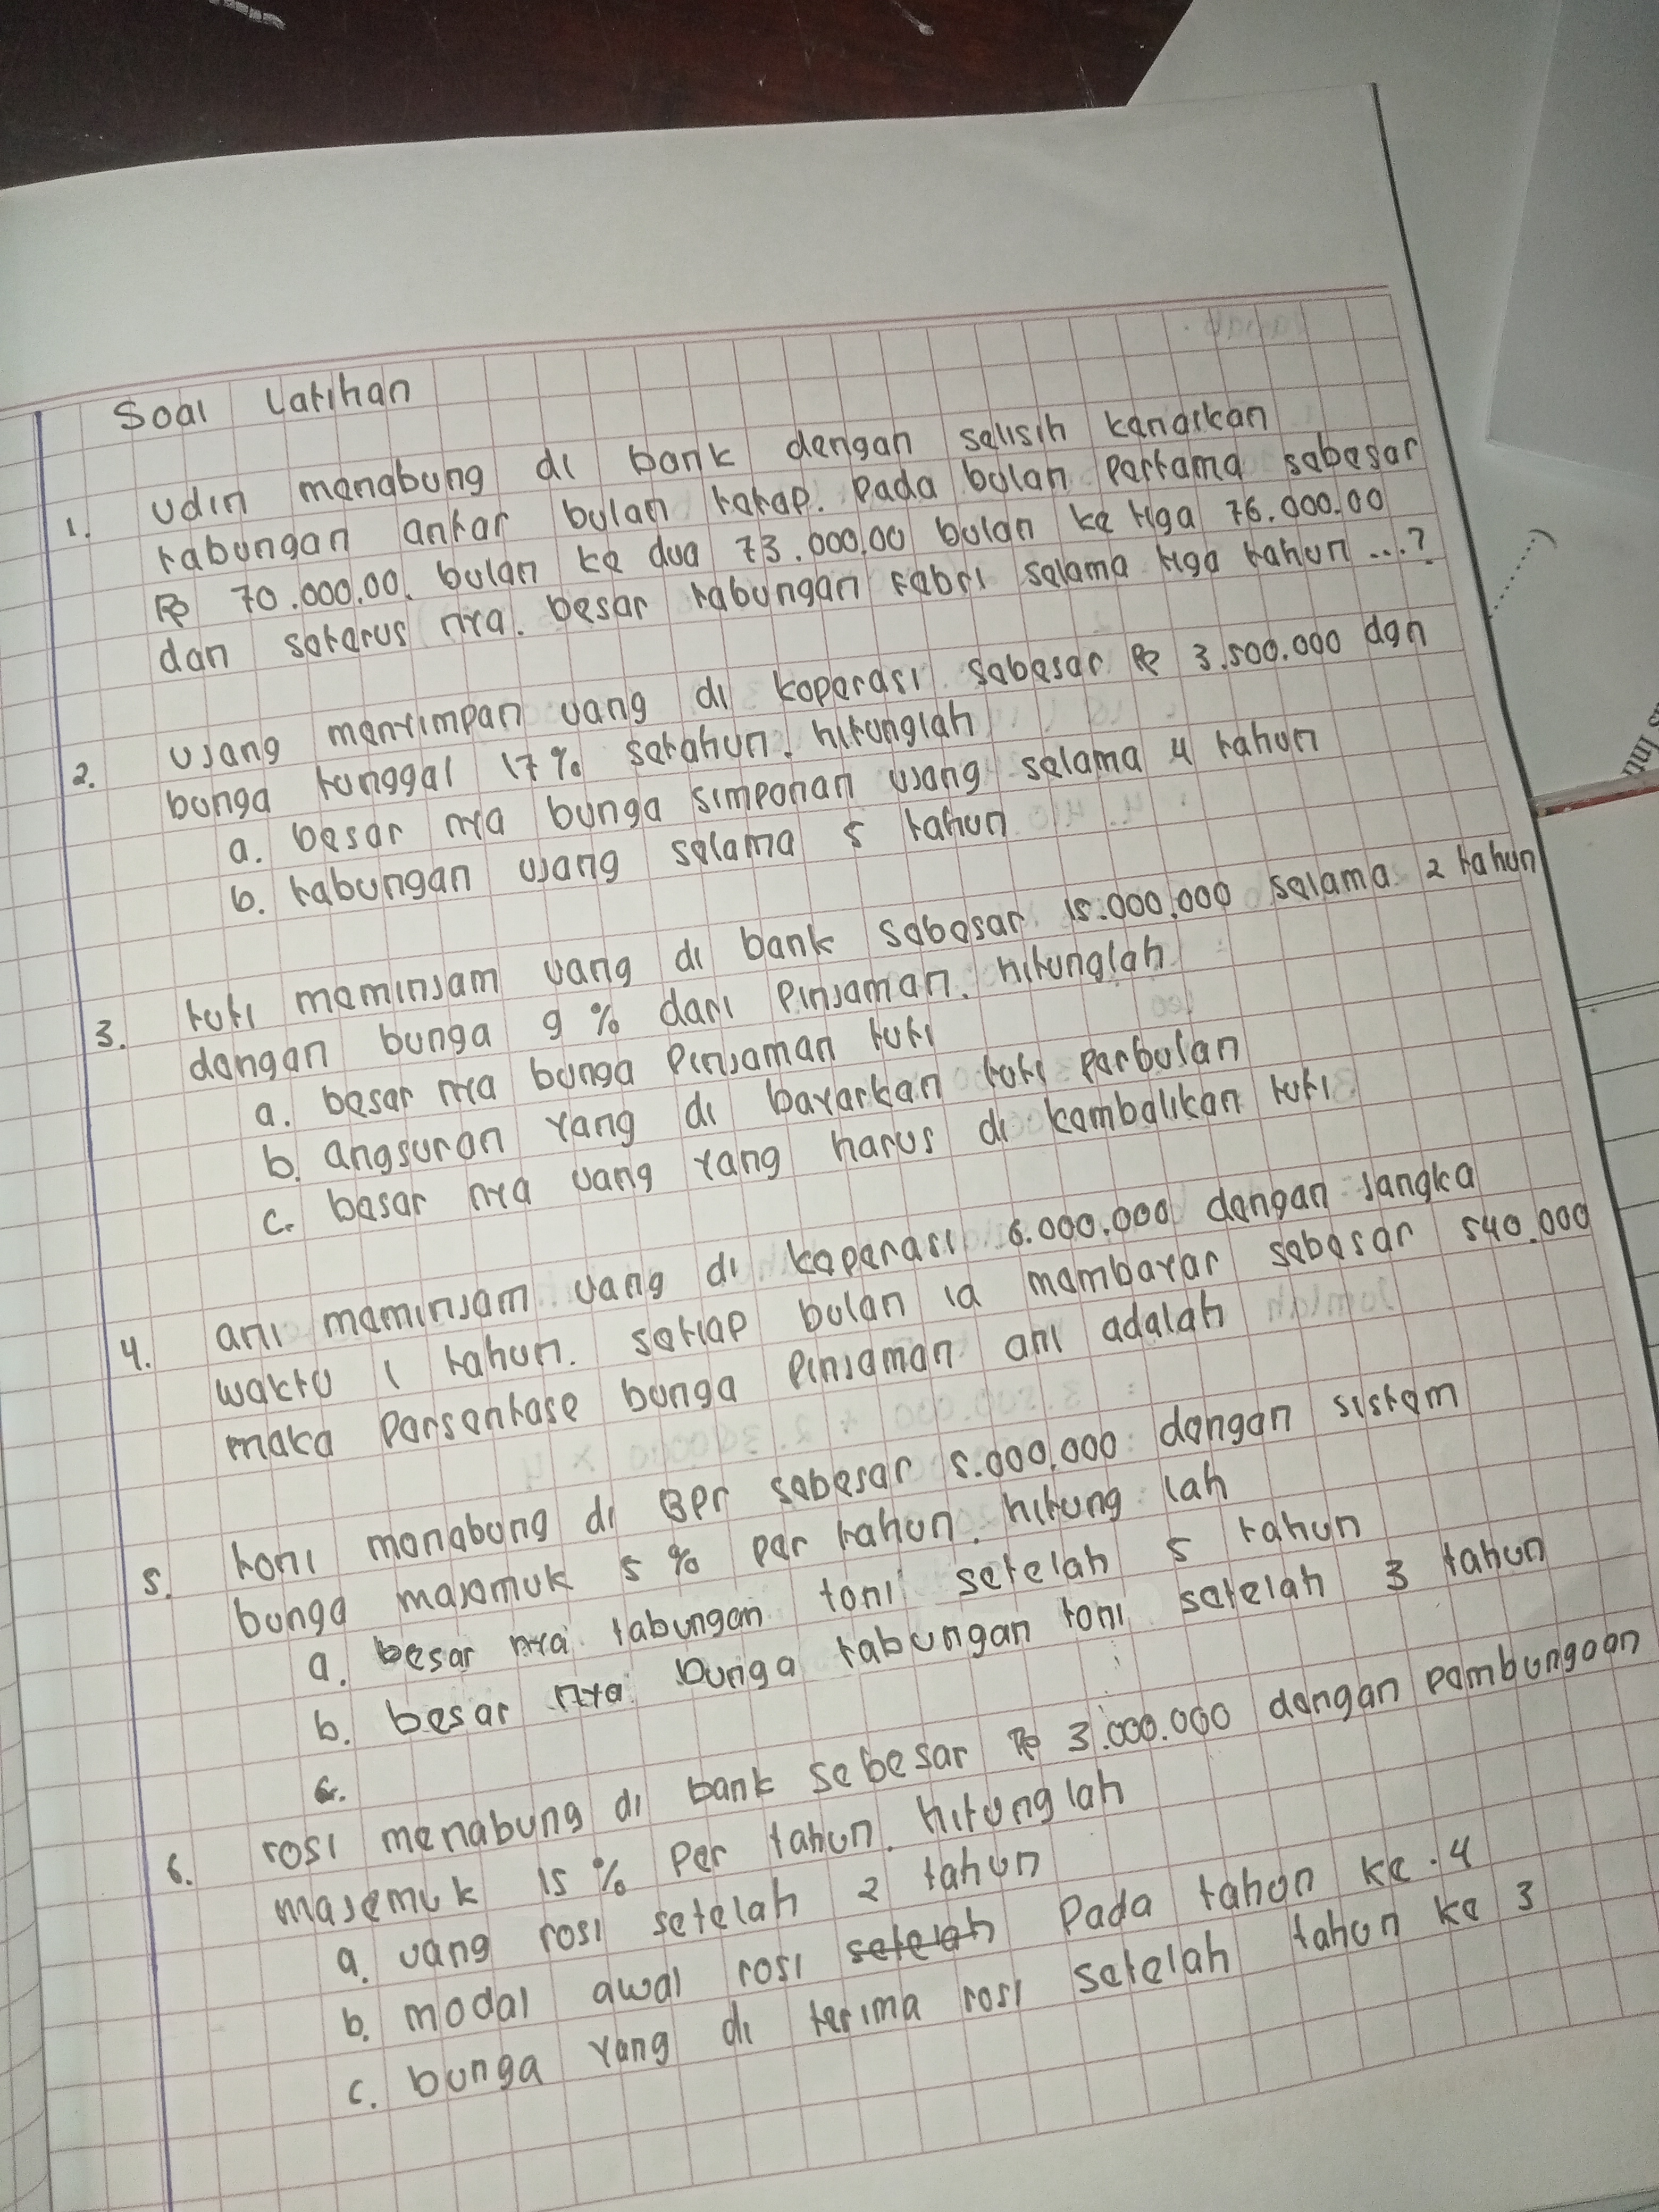 Soal Latihan
1. Udin menabung di bank dengan selisih kenaikan
tabungan antar bulan tetap. Pada bulan pertama sebesar
Rp 70.000,00. bulan ke dua 73.000,00 bulan ke tiga 76.000.00
dan seterus nya. besar tabungan Febri selama tiga tahun ...?
2. Ujang menyimpan uang di koperasi sebesar Rp 3.500.000 dgn
bunga tunggal 17% setahun. hitunglah
a. besar nya bunga simponan ujang selama 4 tahun
b. tabungan ujang selama 5 tahun
3. tuti meminjam uang di bank sebesar 15.000.000 selama 2 tahun
dengan bunga 9 % dari Pinjaman. hitunglah
a. besar nya bunga Pinjaman tuti
b. angsuran yang di bayarkan tuti perbulan
c. besar nya uang yang harus di kembalikan tuti
4. ani meminjam uang di koperasi 6.000.000 dengan jangka
waktu 1 tahun. setiap bulan ia membayar sebesar 540.000
maka Persentase bunga Pinjaman ani adalah
5. toni menabung di BPr sebesar 5.000.000 dengan sistem
bunga majemuk 5 % per tahun. hitung lah
a. besar nya tabungan toni setelah 5 tahun
b. besar nya bunga tabungan toni setelah 3 tahun
c.
6. rosi menabung di bank sebesar Rp 3.000.000 dengan pembungaan
majemuk 15 % Per tahun. hitunglah
a. uang rosi setelah 2 tahun
b. modal awal rosi setelah Pada tahun ke.4
c. bunga yang di terima rosi setelah tahun ke 3